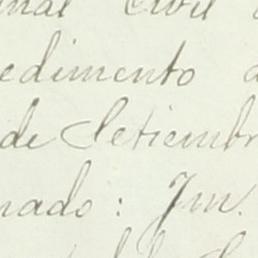 nal Civil
edimento d
de Setiembr
nado: Jm.